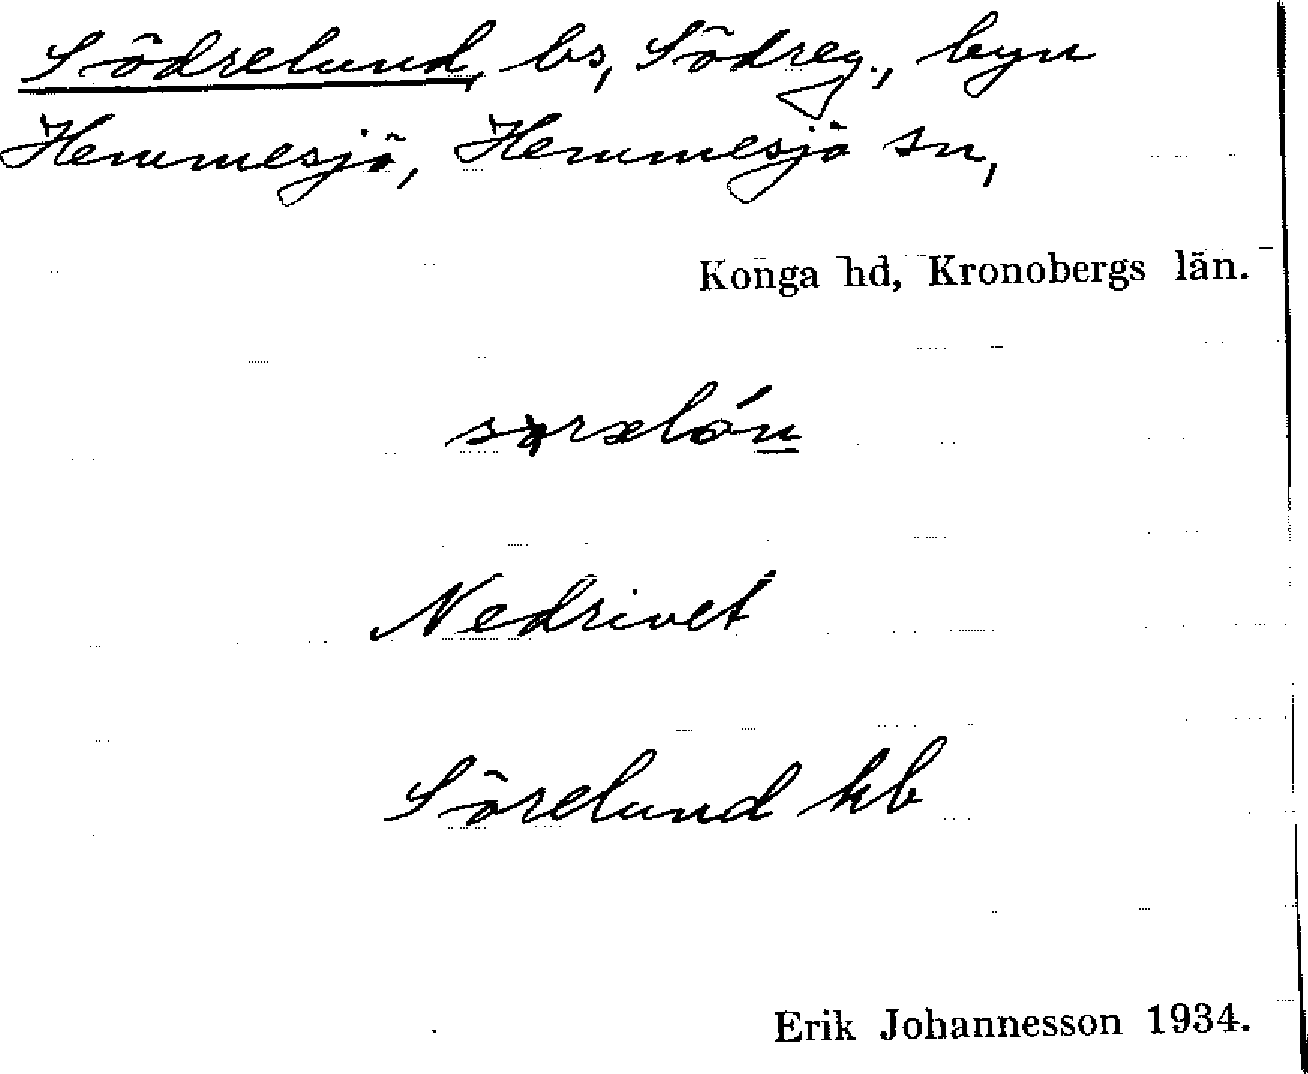 Södrelund, bs, Södreg., byn
Hemmesjö, Hemmesjö sn,
Konga hd, Kronobergs län.
Nedrivet
Sörelund kb
Erik Johannesson 1934.